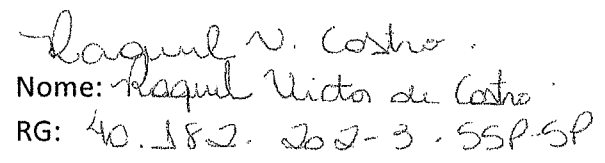 Raquel V. Castro.
Nome: Raquel Victor de Castro.
RG: 40.182.202-3.SSP-SP